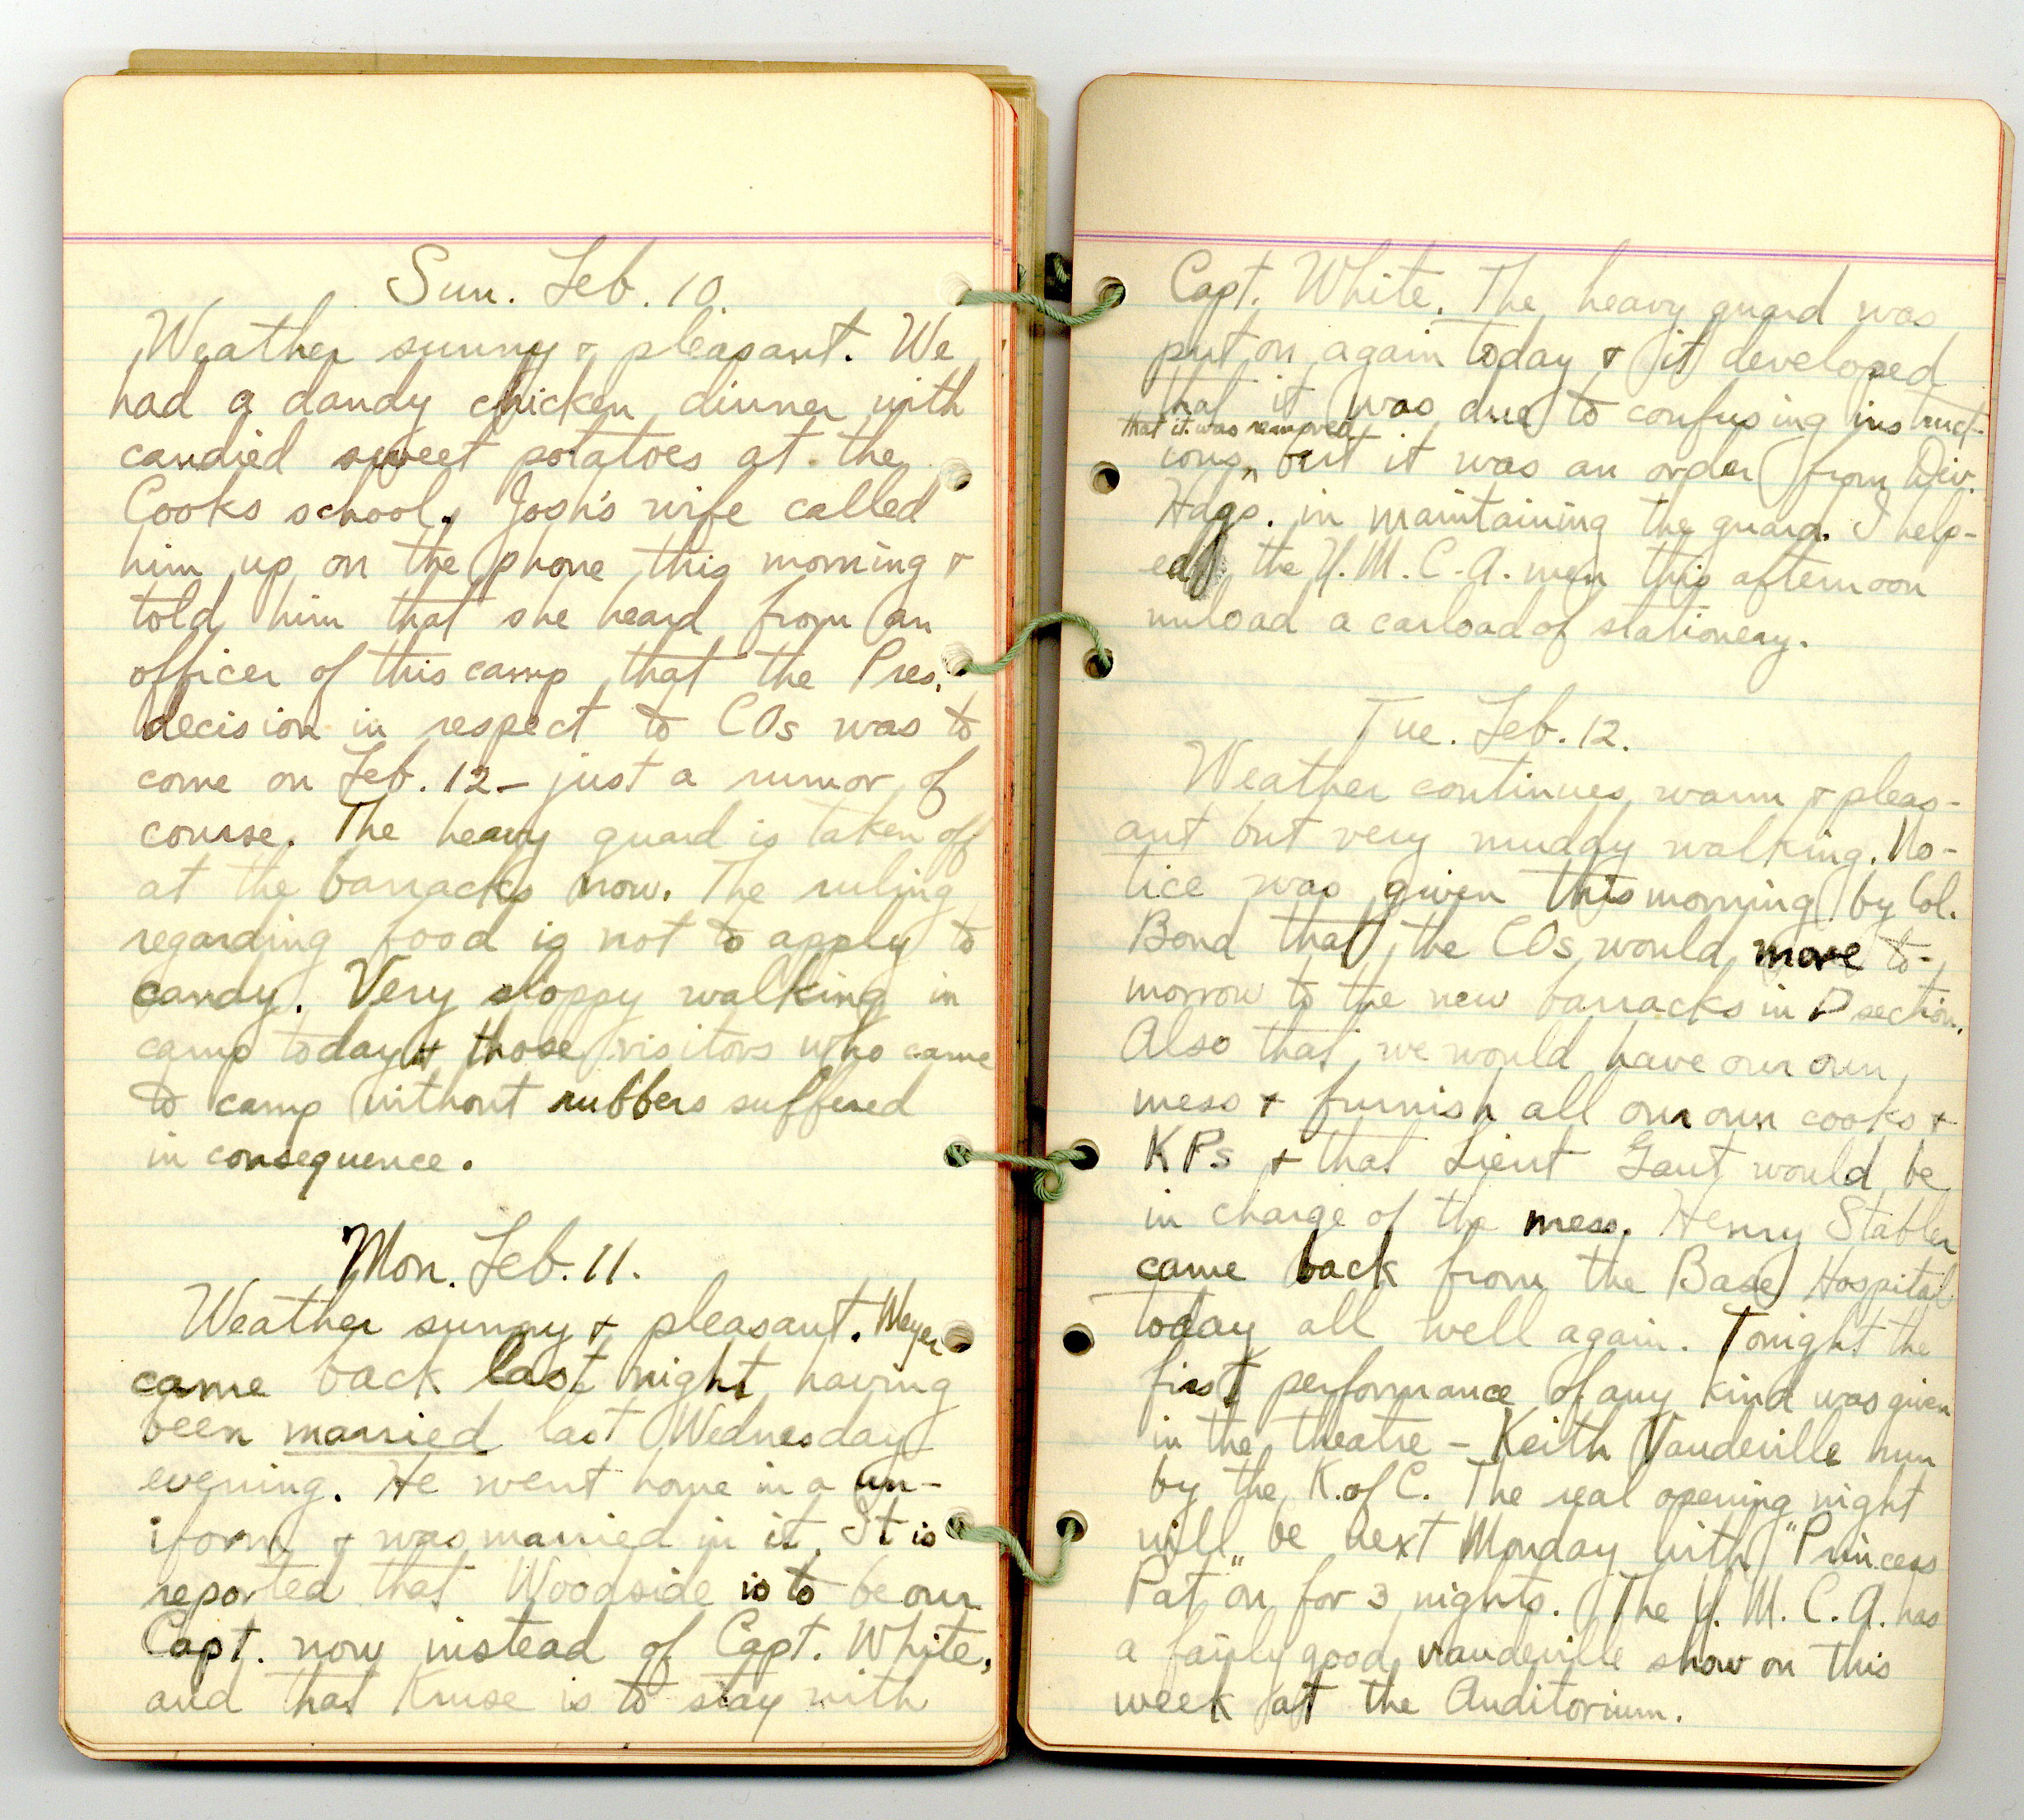 Sun. Feb. 10
Weather sunny & pleasant. We
had a dandy chicken dinner with
candied sweet potatoes at the
Cooks school. Josh's wife called
him up on the phone this morning &
told him that she heard from an
officer of this camp that the Pres.
decision in respect to COs was to
come on Feb. 12 – just a rumor of
course. The heavy guard is taken off
at the barracks now. The ruling
regarding food is not to apply to
candy. Very sloppy walking in
camp today & those visitors who came
to camp without rubbers suffered
in consequence.
Mon. Feb. 11.
Weather sunny & pleasant. Meyer
came back last night having
been married last Wednesday
evening. He went home in a un-
iform & was married in it. It is
reported that Woodside is to be our
Capt. now instead of Capt. White,
and that Kruse is to stay with
Capt. White. The heavy guard was
put on again today & it developed
that it was due to confusing instruct-
that it was removed
ions, but it was an order from Div.
Hdqs. in maintaining the guard. I help-
ed the Y.M.C.A. men this afternoon
unload a carload of stationery.
Tue. Feb. 12.
Weather continues warm & pleas-
ant but very muddy walking. No-
tice was given this morning by Col.
Bond that the COs would move to-
morrow to the new barracks in P section.
Also that we would have our own
mess & furnish all our own cooks &
KPs & that Lieut Gaut would be
in charge of the mess. Henry Stabler
came back from the Base Hospital
today all well again. Tonight the
first performance of any kind was given
in the theatre – Keith Vaudeville run
by the K. of C. The real opening night
will be next Monday with "Princess
Pat" on for 3 nights. The Y.M.C.A. has
a fairly good vaudeville show on this
week at the Auditorium.